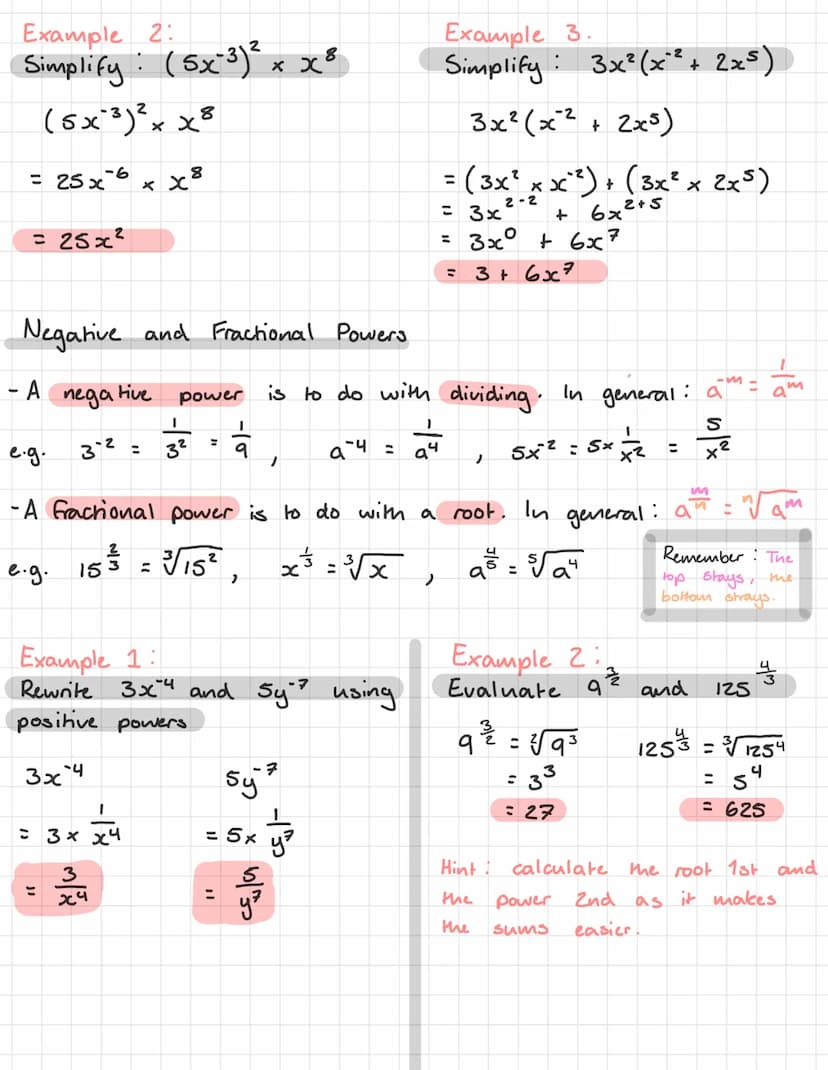 Example 2:
Simplify : (5x⁻³)² × x⁸
(5x⁻³)² × x⁸
= 25x⁻⁶ × x⁸
= 25x²
Example 3.
Simplify : 3x²(x⁻² + 2x⁵)
3x²(x⁻² + 2x⁵)
= (3x² × x⁻²) + (3x² × 2x⁵)
= 3x²⁻² + 6x²⁺⁵
= 3x⁰ + 6x⁷
= 3 + 6x⁷
Negative and Fractional Powers
- A negative power is to do with dividing. In general : a⁻ᵐ = 1/aᵐ
e.g. 3⁻² = 1/3² = 1/9 , a⁻⁴ = 1/a⁴ , 5x⁻² = 5 × 1/x² = 5/x²
- A fractional power is to do with a root. In general : a^(m/n) = ⁿ√aᵐ
e.g. 15^(2/3) = ³√15² , x^(1/3) = ³√x , a^(4/5) = ⁵√a⁴
Remember : The
top stays, the
bottom strays.
Example 1 :
Rewrite 3x⁻⁴ and 5y⁻⁷ using
positive powers
3x⁻⁴
= 3 × 1/x⁴
= 3/x⁴
5y⁻⁷
= 5 × 1/y⁷
= 5/y⁷
Example 2 :
Evaluate 9^(3/2) and 125^(4/3)
9^(3/2) = ²√9³
= 3³
= 27
125^(4/3) = ³√125⁴
= 5⁴
= 625
Hint : calculate the root 1st and
the power 2nd as it makes
the sums easier.